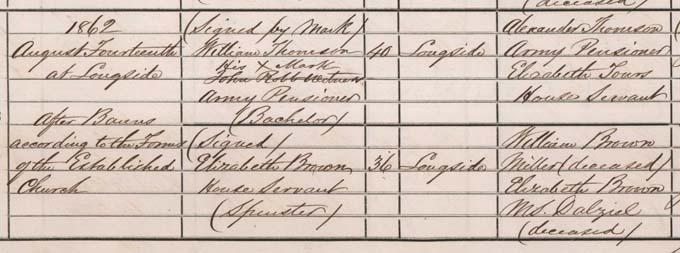 (deceased)
1862
August Fourteenth
at Longside
After Banns
according to the Forms
of the Established
Church
(Signed by Mark)
William Thomson
His X Mark
John Robb Witness
Army Pensioner
(Bachelor)
(Signed)
Elizabeth Brown
House Servant
(Spinster)
40
36
Longside
Longside
Alexander Thomson
Army Pensioner
Elizabeth
House Servant
William Brown
Miller (deceased)
Elizabeth Brown
Ms. Dalziel
(deceased)